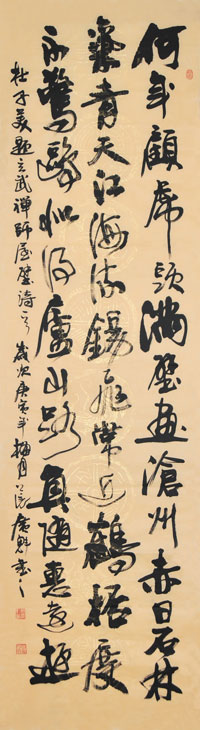 何年顧虎頭滿壁畫滄州赤日石林
氣青天江海流錫飛常近鶴杯度
不驚鷗似得廬山路真隨惠遠遊
杜子美題玄武禪師屋壁詩 歲次庚寅年 月 書